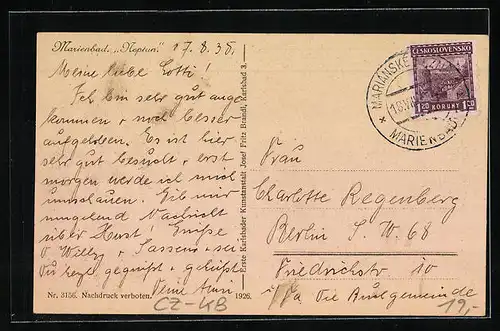 Marienbad. „Neptun". 17.8.35.
Meine liebe Lotti!
Ich bin sehr gut ange
kommen, + noch besser
aufgehoben. Es ist hier
sehr gut besucht, + erst
morgen werde ich mich
umschauen. Gib mir
umgehend Nachricht
über Horst! Grüße
v. Willy + sei
Du herzl. gegrüßt + geküßt
Deine
Nr. 3156. Nachdruck verboten.
1926.
CZ-KB
Erste Karlsbader Kunstanstalt Josef Fritz Brandl, Karlsbad 3.
ČESKOSLOVENSKO
1.20 KORUNY 1.20
MARIÁNSKÉ
MARIENBAD
Frau
Charlotte Regenberg
Berlin S.W. 68
Friedrichstr 10
19,-